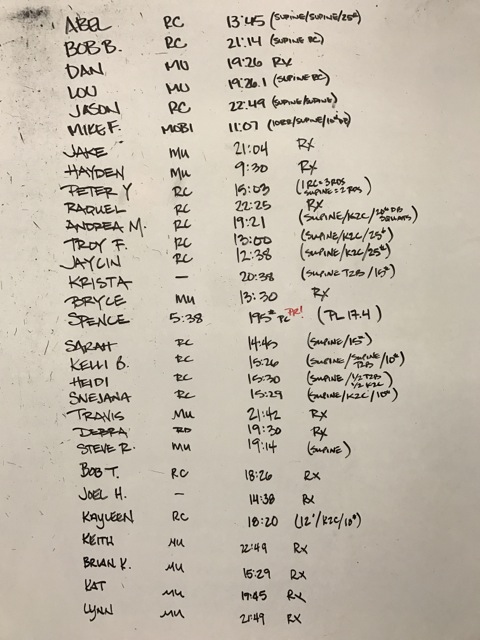 ABEL RC 13:45 (SUPINE/SUPINE/25#)
BOB B. RC 21:14 (SUPINE RC)
DAN MU 19:26 RX
LOU MU 19:26.1 (SUPINE RC)
JASON RC 22:49 (SUPINE/SUPINE)
MIKE F. MOBI 11:07 (10RR/SUPINE/10# DB)
JAKE MU 21:04 RX
HAYDEN MU 9:30 RX
PETER Y RC 15:03 (1 RC = 3 RDS SUPINE = 2 RDS)
RAQUEL RC 22:25 RX
ANDREA M. RC 19:21 (SUPINE/K2C/20# DB SQUATS)
TROY F. RC 13:00 (SUPINE/K2C/25#)
JAYCIN RC 12:38 (SUPINE/K2C/25#)
KRISTA — 20:38 (SUPINE T2B/15#)
BRYCE MU 13:30 RX
SPENCE 5:38 195# PC PR! (PL 17.4)
SARAH RC 14:45 (SUPINE/15#)
KELLI B. RC 15:26 (SUPINE/SUPINE T2B/10#)
HEIDI RC 15:30 (SUPINE/1/2 T2B 1/2 K2C)
SNEJANA RC 15:29 (SUPINE/K2C/10#)
TRAVIS MU 21:42 RX
DEBRA 19:30 RX
STEVE R. MU 19:14 (SUPINE)
BOB T. RC 18:26 RX
JOEL H. — 14:38 RX
KAYLEEN RC 18:20 (12"/K2C/10#)
KEITH MU 22:49 RX
BRIAN K. MU 15:29 RX
KAT MU 19:45 RX
LYNN MU 21:49 RX